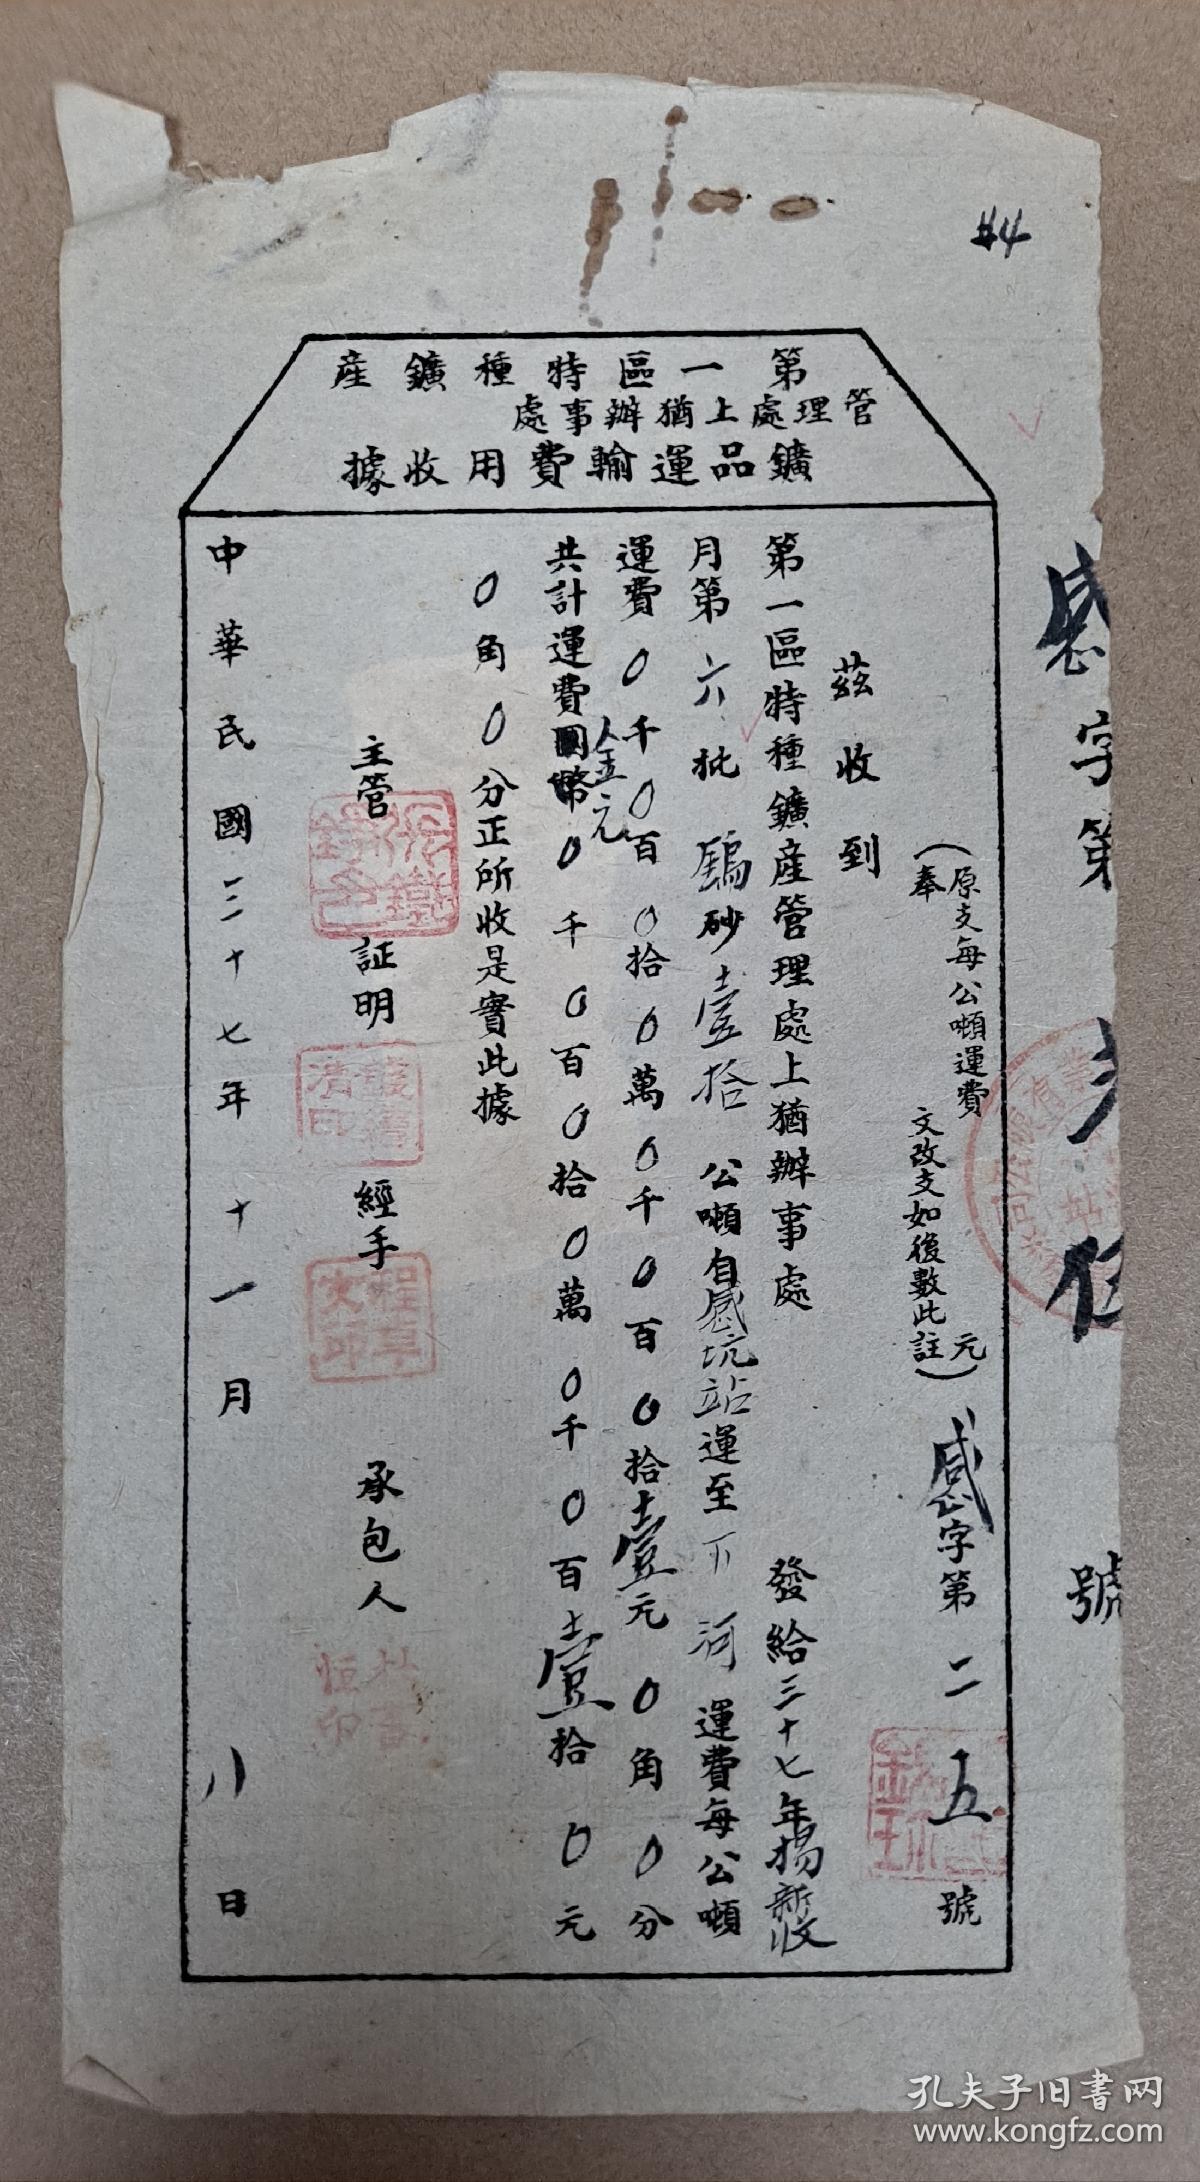 #4
第一區特種鑛産
管理處上猶辦事處
鑛品運輸費用收據
感字第 號
感字第二五號
(原支每公噸運費 元
奉 文改支如後數此註)
茲收到
第一區特種鑛産管理處上猶辦事處 發給三十七年楊新收
月第六批鎢砂壹拾公噸自感坑站運至下河運費每公噸
運費0千0百0拾0萬0千0百0拾壹元0角0分
共計運費金元0千0百0拾0萬0千0百壹拾0元
0角0分正所收是實此據
主管 証明 經手 承包人
中華民國三十七年十一月八日
孔夫子旧书网
www.kongfz.com